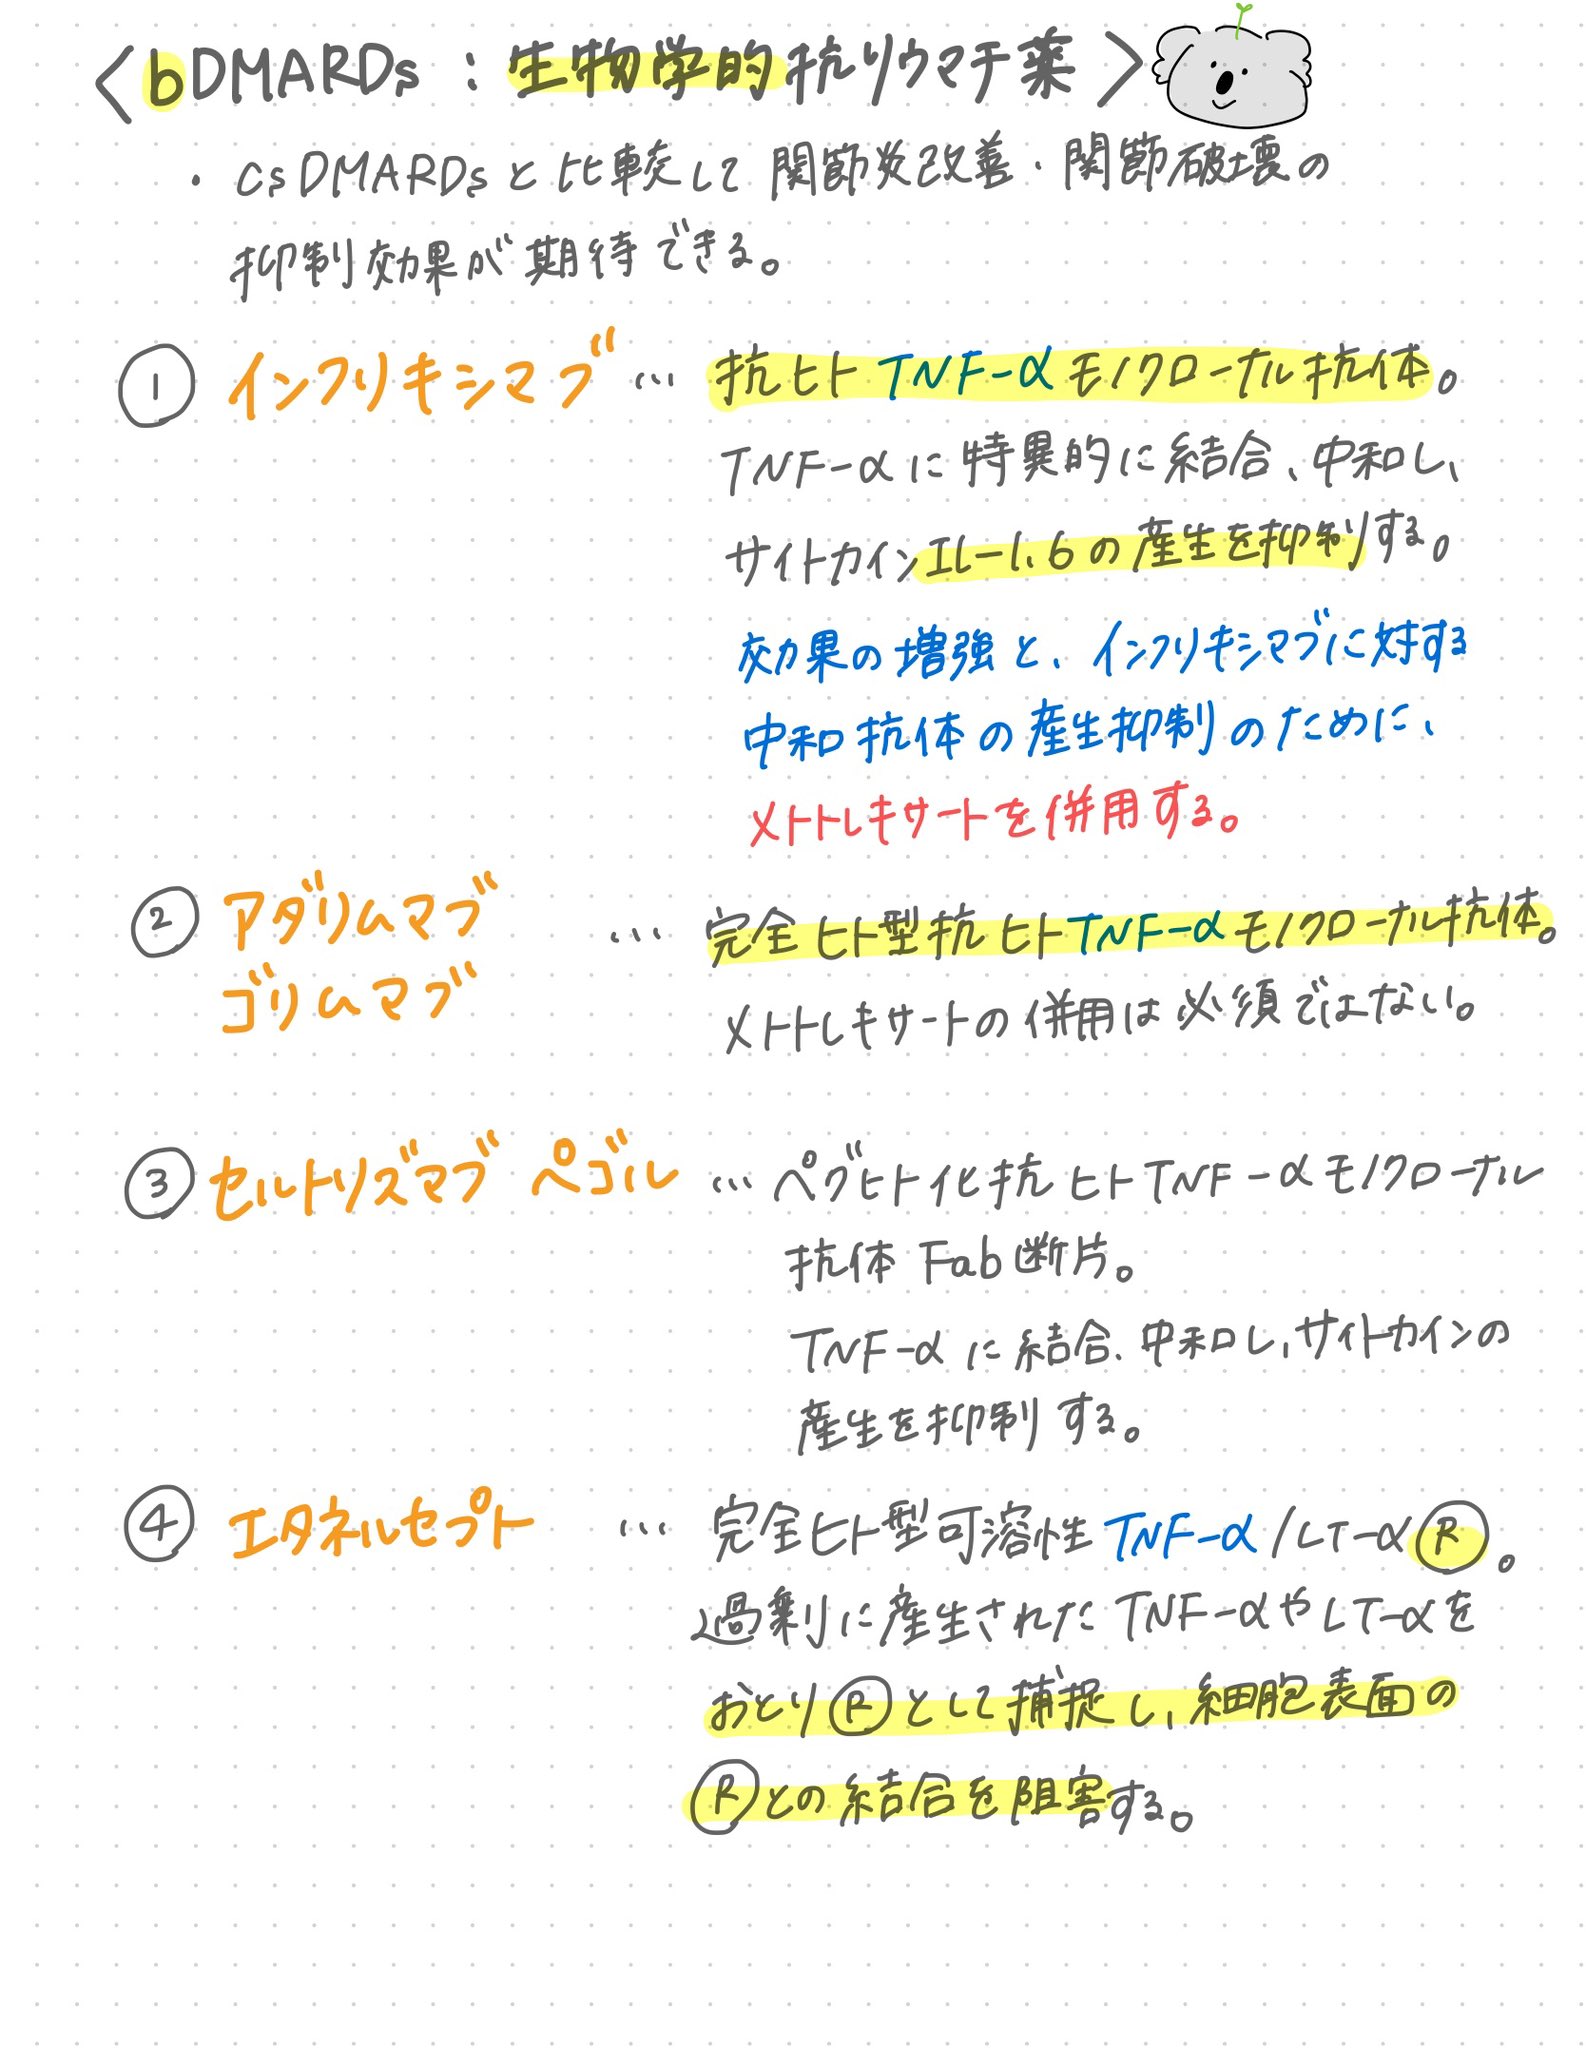 <bDMARDs : 生物学的抗リウマチ薬>
・csDMARDsと比較して関節炎改善・関節破壊の
抑制効果が期待できる。
① インフリキシマブ … 抗ヒトTNF-αモノクローナル抗体。
TNF-αに特異的に結合、中和し、
サイトカインIL-1、6の産生を抑制する。
効果の増強と、インフリキシマブに対する
中和抗体の産生抑制のために、
メトトレキサートを併用する。
② アダリムマブ … 完全ヒト型抗ヒトTNF-αモノクローナル抗体。
ゴリムマブ メトトレキサートの併用は必須ではない。
③ セルトリズマブ ペゴル … ペグヒト化抗ヒトTNF-αモノクローナル
抗体Fab断片。
TNF-αに結合、中和し、サイトカインの
産生を抑制する。
④ エタネルセプト … 完全ヒト型可溶性TNF-α/LT-αⓇ。
過剰に産生されたTNF-αやLT-αを
おとりⓇとして捕捉し、細胞表面の
Ⓡとの結合を阻害する。